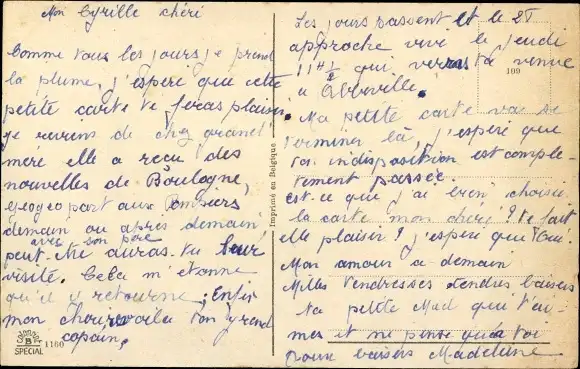 Mon Cyrille chéri
Comme tous les jours je prend
la plume, j'espère que cette
petite carte te feras plaisir.
Je reviens de chez granet
mère elle a reçu des
nouvelles de Boulogne,
part aux Pompiers
demain ou après demain,
avec son père
peut-être auras-tu leur
visite. Cela m'étonne
qu'il y retourne; Enfin
mon chou voila ton grand
copain,
3 B
SPECIAL 1160
Imprimé en Belgique
109
Les jours passent et le 25
approche vive le jeudi
11h ½ qui verras ta venue
à Abbeville.
Ma petite carte va se
terminer là, j'espère que
ton indisposition est complè-
tement passée.
est-ce que j'ai bien choisie
la carte mon chéri? te fait
elle plaisir? j'espère que Oui.
Mon amour a demain
Milles tendresses tendres baisers
ta petite Mad qui t'ai-
mes et ne pense qu'à toi
doux baisers Madeleine